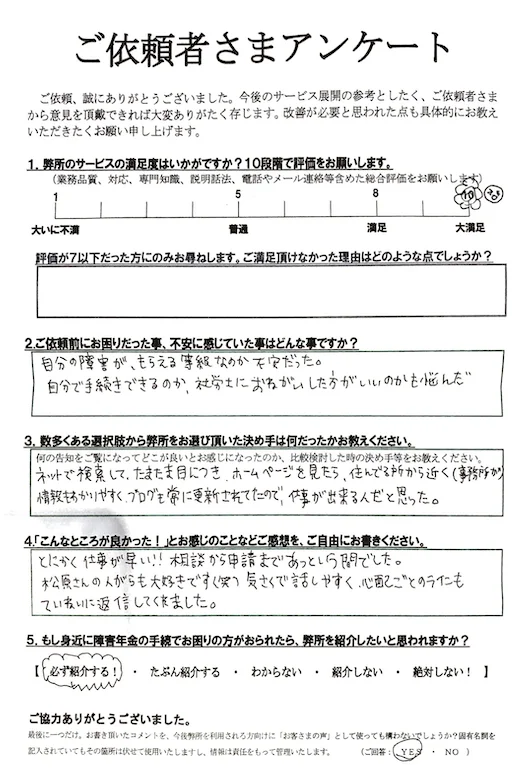 ご依頼者さまアンケート
ご依頼、誠にありがとうございました。今後のサービス展開の参考としたく、ご依頼者さま
から意見を頂戴できれば大変ありがたく存じます。改善が必要と思われた点も具体的にお教え
いただきたくお願い申し上げます。
1. 弊所のサービスの満足度はいかがですか？10段階で評価をお願いします。
（業務品質、対応、専門知識、説明話法、電話やメール連絡等含めた総合評価をお願いします）
1 5 8 10
大いに不満 普通 満足 大満足
評価が7以下だった方にのみお尋ねします。ご満足頂けなかった理由はどのような点でしょうか？
2.ご依頼前にお困りだった事、不安に感じていた事はどんな事ですか？
自分の障害が、もらえる等級なのか不安だった。
自分で手続きできるのか、社労士におねがいした方がいいのかも悩んだ
3. 数多くある選択肢から弊所をお選び頂いた決め手は何だったかお教えください。
何の告知をご覧になってどこが良いとお感じになったのか、比較検討した時の決め手等をお教えください。
ネットで検索して、たまたま目につき、ホームページを見たら、住んでる所から近く(事務所が)
情報もわかりやすく、ブログも常に更新されてたので、仕事が出来る人だと思った。
4.「こんなところが良かった！」とお感じのことなどご感想を、ご自由にお書きください。
とにかく仕事が早い!! 相談から申請まであっという間でした。
松原さんの人がらも大好きです(笑) 気さくで話しやすく、心配ごとのラインにも
ていねいに返信してくれました。
5. もし身近に障害年金の手続でお困りの方がおられたら、弊所を紹介したいと思われますか？
【 必ず紹介する！ ・ たぶん紹介する ・ わからない ・ 紹介しない ・ 絶対しない！ 】
ご協力ありがとうございました。
最後に一つだけ。お書き頂いたコメントを、今後弊所を利用される方向けに「お客さまの声」として使っても構わないでしょうか？固有名詞を
記入されていてもその箇所は伏せて使用いたしますし、情報は責任をもって管理いたします。 （ご回答： YES ・ NO ）